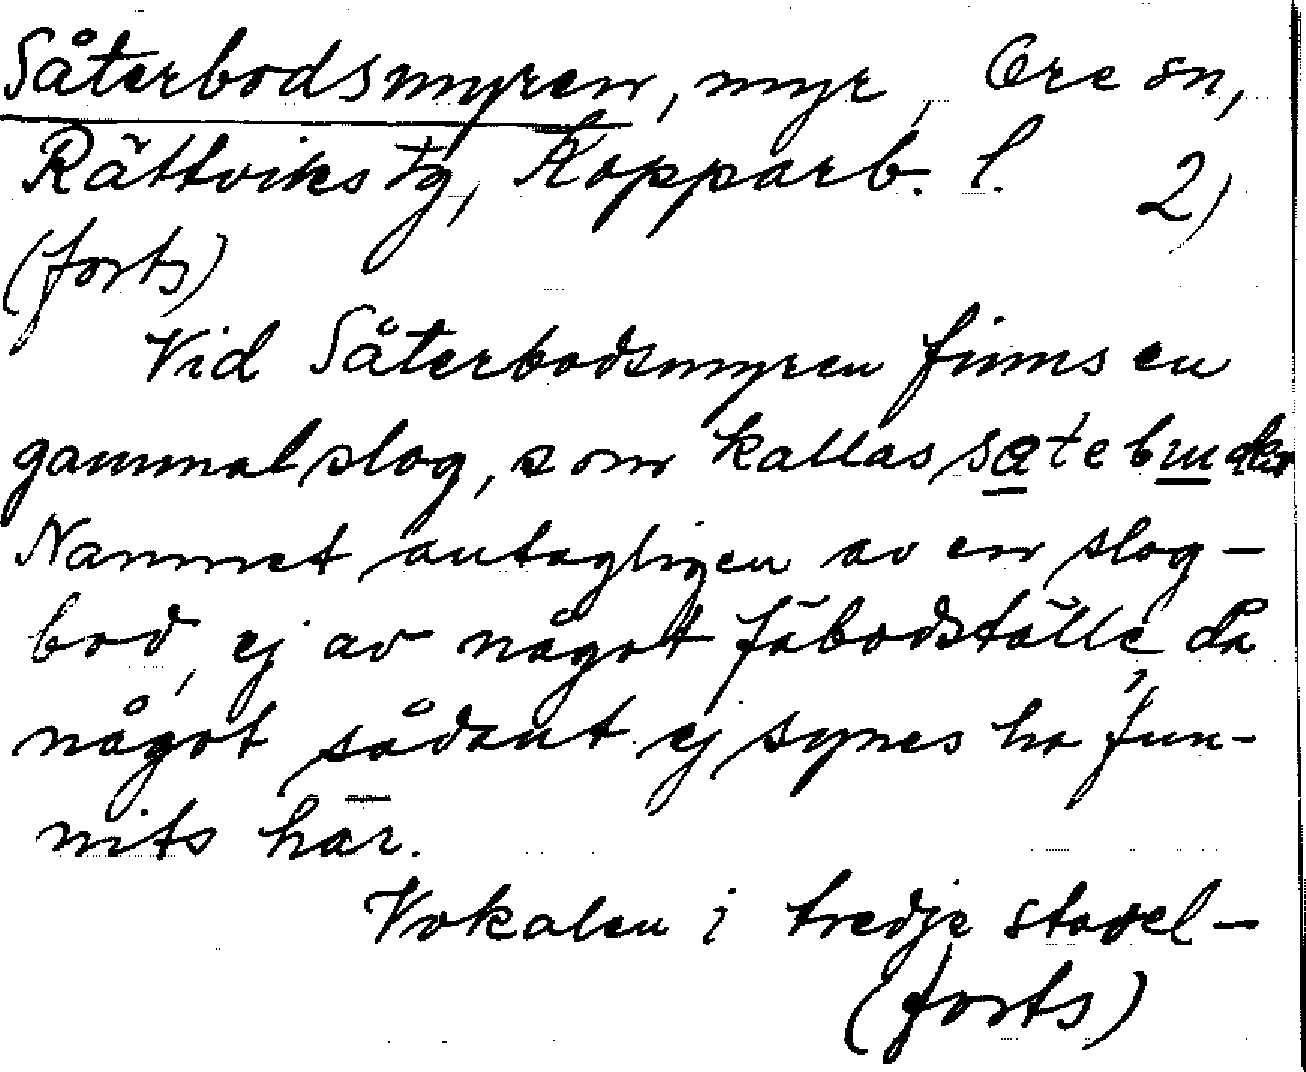 Såterbodsmyren, myr, Ore sn,
Rättviks tg, Kopparb. l. 2)
(forts)
Vid Såterbodsmyren finns en
gammal slog, som kallas
Namnet antagligen av en slog-
bod, ej av något fäbodställe, då
något sådant ej synes ha fun-
nits här.
Vokalen i tredje stavel-
(forts)